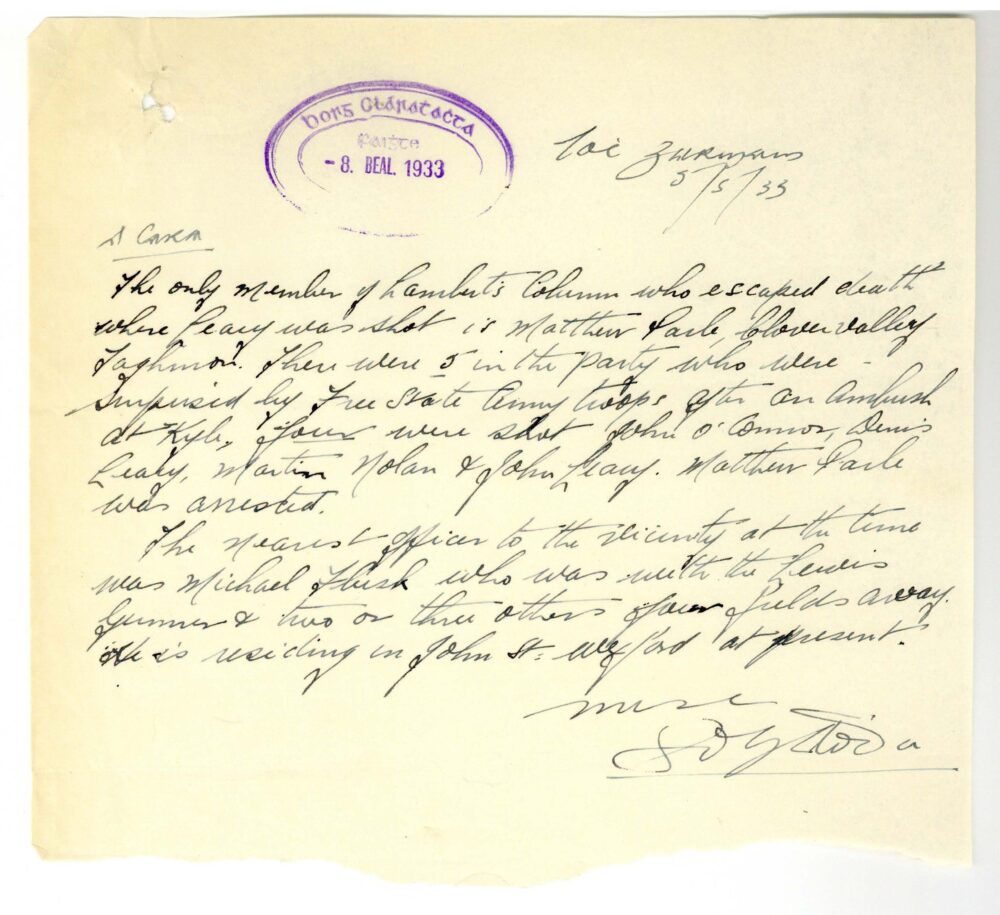 Borḋ Cláraṫaċta
Faiġte
- 8. BEAL. 1933
Loc
5/5/33
A Cara
The only member of Lambert's Column who escaped death
where Leary was shot is Matthew Parle, Clovervalley
Taghmon. There were 5 in the party who were -
surprised by Free State Army troops after an Ambush
at Kyle, four were shot John O'Connor, Denis
Leary, Martin Nolan & John Leary. Matthew Parle
was arrested.
The nearest officer to the vicinity at the time
was Michael Flusk who was with the Lewis
Gunner & two or three others four fields away.
He is residing in John St: Wexford at present.
mise